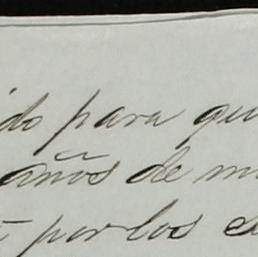 do para qu
años de m
por los